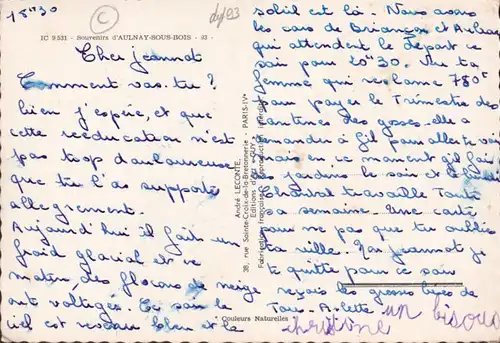 18H30
C
dy/93
IC 9 531 - Souvenirs d'AULNAY-SOUS-BOIS - 93 -
Cher jeannot
Comment vas-tu ?
bien j'espère, et que
cette rééducation n'est
pas trop douloureuse
que tu l'as supporte
allegrement.
Aujourd'hui il fait un
froid glacial de ce
matin, des flocons de neige
ont voltigés. Ce soir le
ciel est nouveau bleu et le
soleil est là. Nous avons
les cars de Briançon et
qui attendent le départ ce
soir pour 20H30. Vu ta
femme qui réclame 780F
pour payer le Trimestre des
cantines des gosses. elle a
demandé à Gil pour aller te voir
mais en ce moment Gil fait
le jardin le soir et
Chantal travaille Toute
sa semaine. Une carte
pour ne pas que tu oublies
ta ville. Mon jeannot je
te quitte pour ce soir
reçois les grosses bises de
Tous - Arlette un bisous
christine
André LECONTE,
38, rue Sainte-Croix-de-la-Bretonnerie - PARIS-IVe
Editions d'art GUY
Fabrication française - Reproduction interdite
Couleurs Naturelles